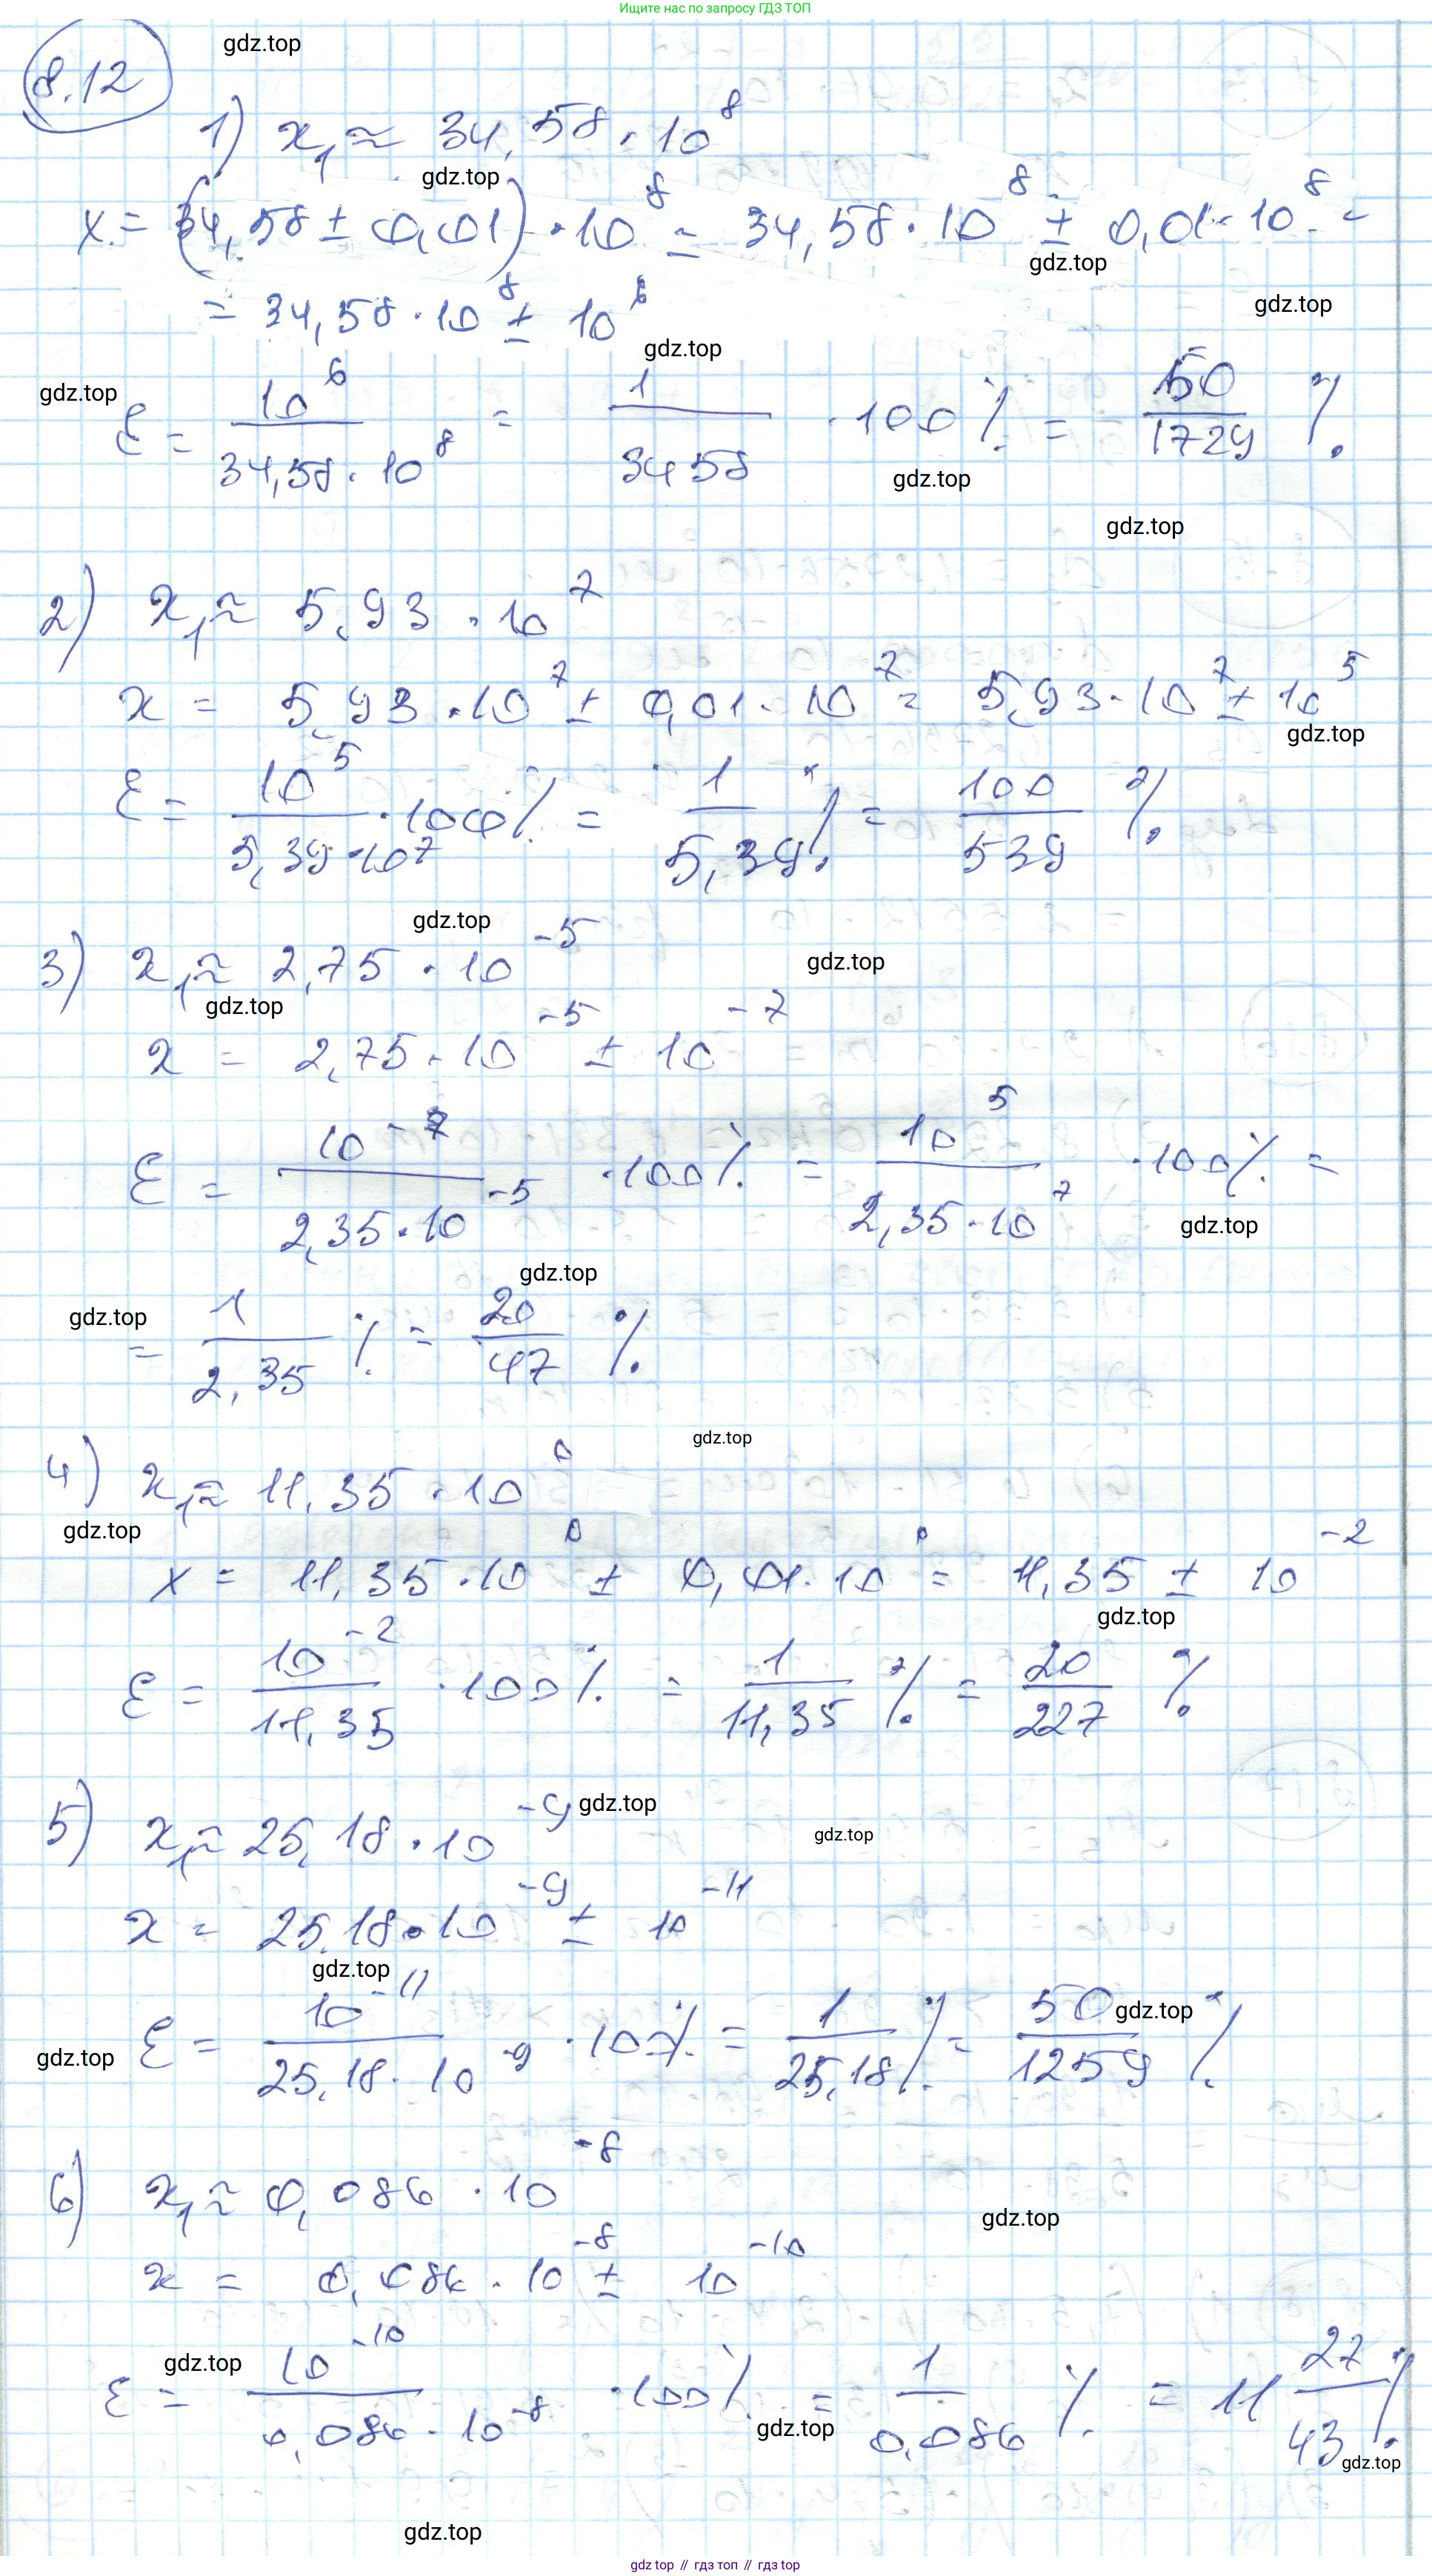 Ищите нас по запросу ГДЗ ТОП
8.12
gdz.top
1) x₁ ≈ 34,58 · 10⁸
gdz.top
x = (34,58 ± 0,01) · 10⁸ = 34,58 · 10⁸ ± 0,01 · 10⁸ =
gdz.top
= 34,58 · 10⁸ ± 10⁶
gdz.top
gdz.top
gdz.top
ε = 10⁶ / (34,58 · 10⁸) = 1 / 3458 · 100% = 50 / 1729 %
gdz.top
gdz.top
2) x₁ ≈ 5,93 · 10⁷
x = 5,93 · 10⁷ ± 0,01 · 10⁷ = 5,93 · 10⁷ ± 10⁵
gdz.top
ε = 10⁵ / (5,39 · 10⁷) · 100% = 1 / 5,39 % = 100 / 539 %
gdz.top
3) x₁ ≈ 2,75 · 10⁻⁵
gdz.top
gdz.top
x = 2,75 · 10⁻⁵ ± 10⁻⁷
ε = 10⁻⁷ / (2,35 · 10⁻⁵) · 100% = 10⁵ / (2,35 · 10⁷) · 100% =
gdz.top
gdz.top
gdz.top
= 1 / 2,35 % = 20 / 47 %
gdz.top
4) x₁ ≈ 11,35 · 10⁰
gdz.top
x = 11,35 · 10⁰ ± 0,01 · 10⁰ = 11,35 ± 10⁻²
gdz.top
ε = 10⁻² / 11,35 · 100% = 1 / 11,35 % = 20 / 227 %
5) x₁ ≈ 25,18 · 10⁻⁹
gdz.top
gdz.top
x = 25,18 · 10⁻⁹ ± 10⁻¹¹
gdz.top
ε = 10⁻¹¹ / (25,18 · 10⁻⁹) · 100% = 1 / 25,18 % = 50 / 1259 %
gdz.top
gdz.top
6) x₁ ≈ 0,086 · 10⁻⁸
gdz.top
x = 0,086 · 10⁻⁸ ± 10⁻¹⁰
gdz.top
ε = 10⁻¹⁰ / (0,086 · 10⁻⁸) · 100% = 1 / 0,086 % = 11 27/43 %
gdz.top
gdz.top
gdz.top
gdz.top // гдз топ // gdz top